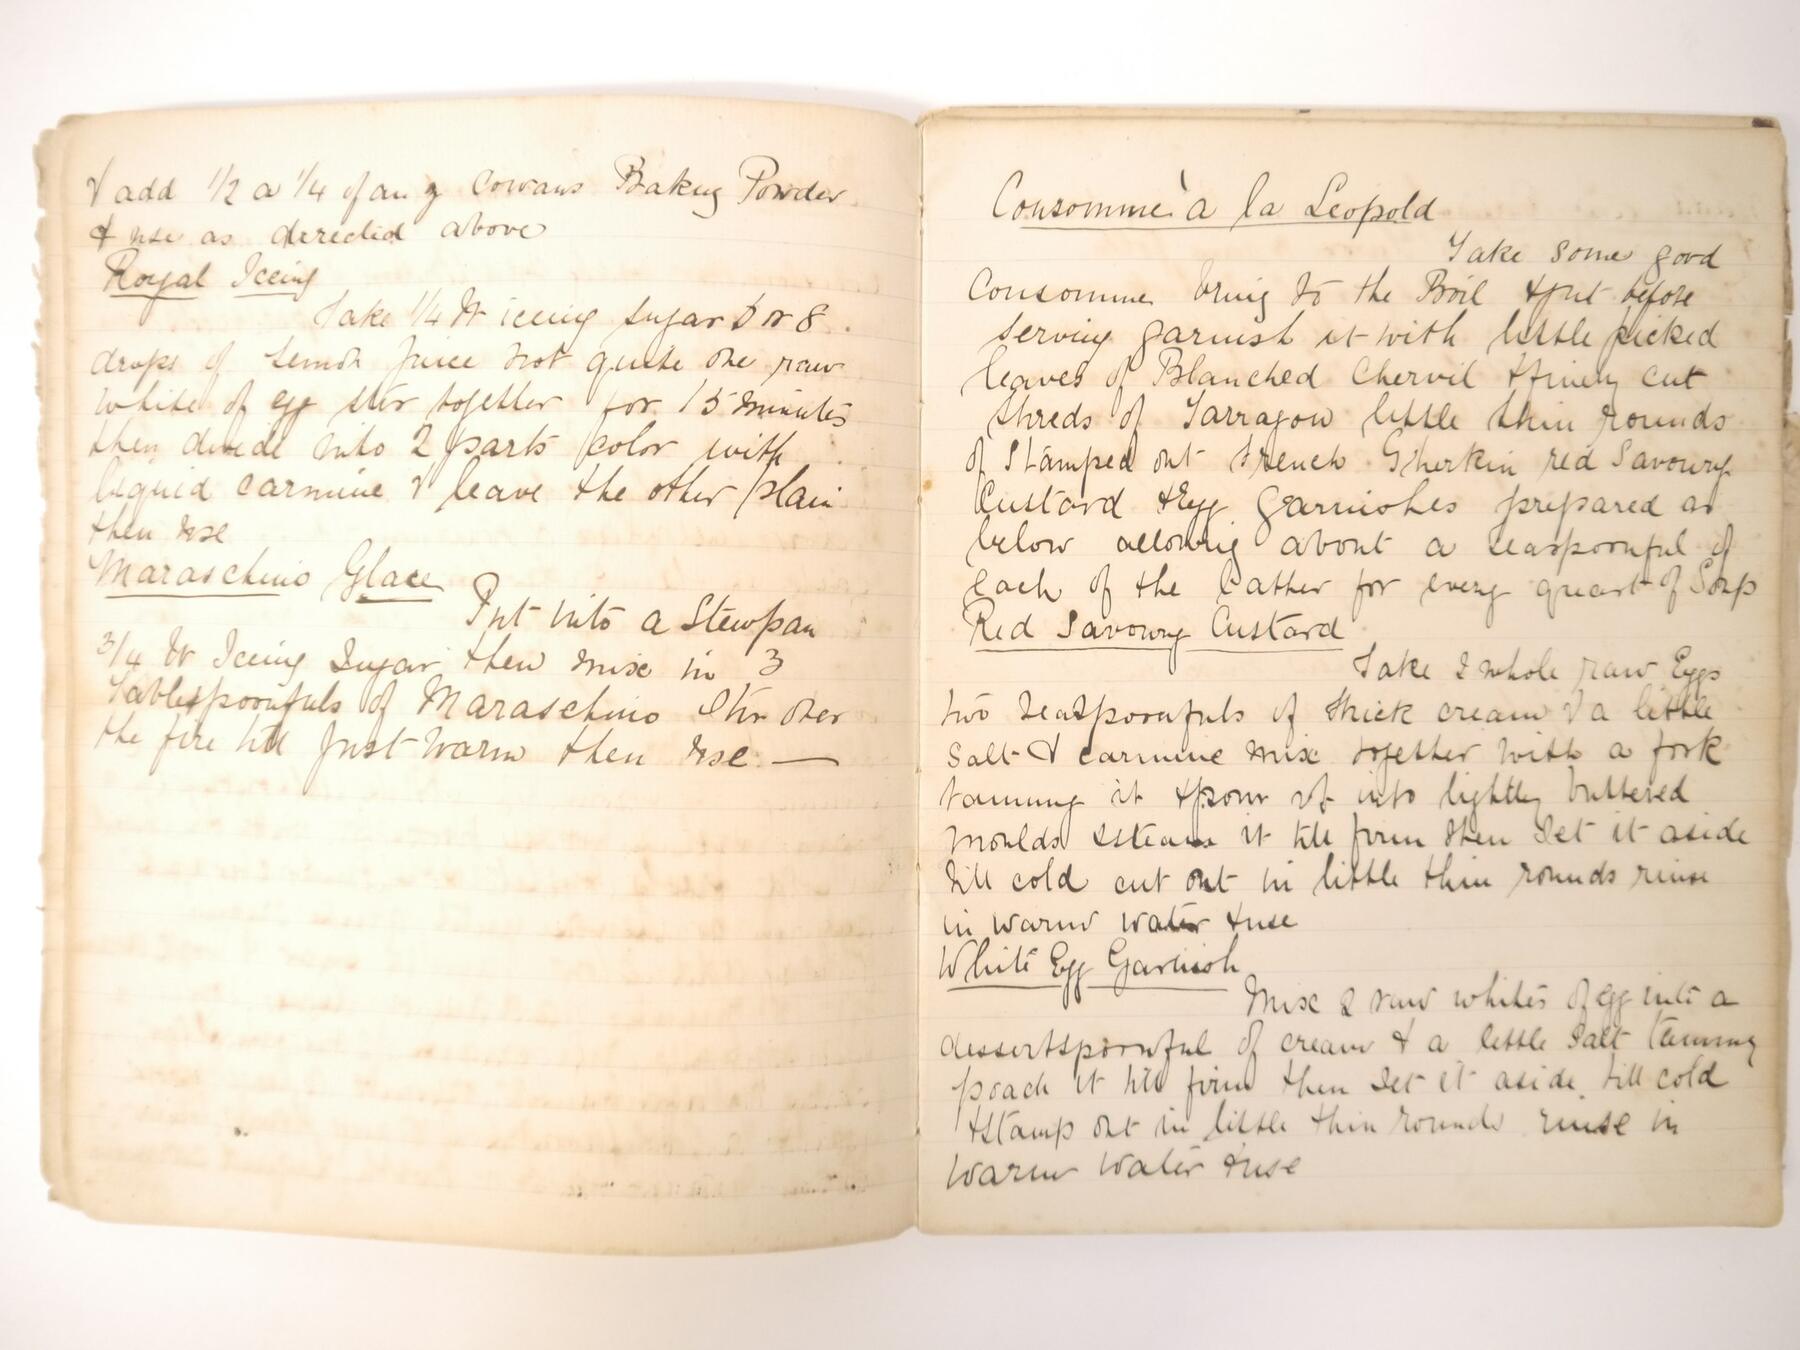 & add 1/2 a 1/4 of an oz Cowans Baking Powder
& use as directed above
Royal Iceing
Take 1/4 lb iceing sugar 6 or 8
drops of Lemon juice not quite one raw
white of egg stir together for 15 minutes
then divide into 2 parts color with
liquid carmine & leave the other plain
then use
Maraschino Glace
Put into a Stewpan
3/4 lb Iceing Sugar then mix in 3
Tablespoonfuls of Maraschino Stir over
the fire till just warm then use —
Consommè à la Leopold
Take some good
Consomme bring to the Boil & just before
serving garnish it with little picked
leaves of Blanched Chervil & finely cut
shreds of Tarragon little thin rounds
of stamped out French Gherkin red Savoury
Custard & Egg Garnishes prepared as
below allowing about a teaspoonful of
each of the latter for every quart of Soup
Red Savoury Custard
Take 2 whole raw Eggs
two teaspoonfuls of thick cream & a little
salt & carmine mix together with a fork
tammy it & pour it into lightly buttered
moulds & steam it till firm then set it aside
till cold cut out in little thin rounds rinse
in warm water & use
White Egg Garnish
Mix 2 raw whites of egg into a
dessertspoonful of cream & a little Salt tammy
poach it till firm then set it aside till cold
& stamp out in little thin rounds rinse in
warm water & use